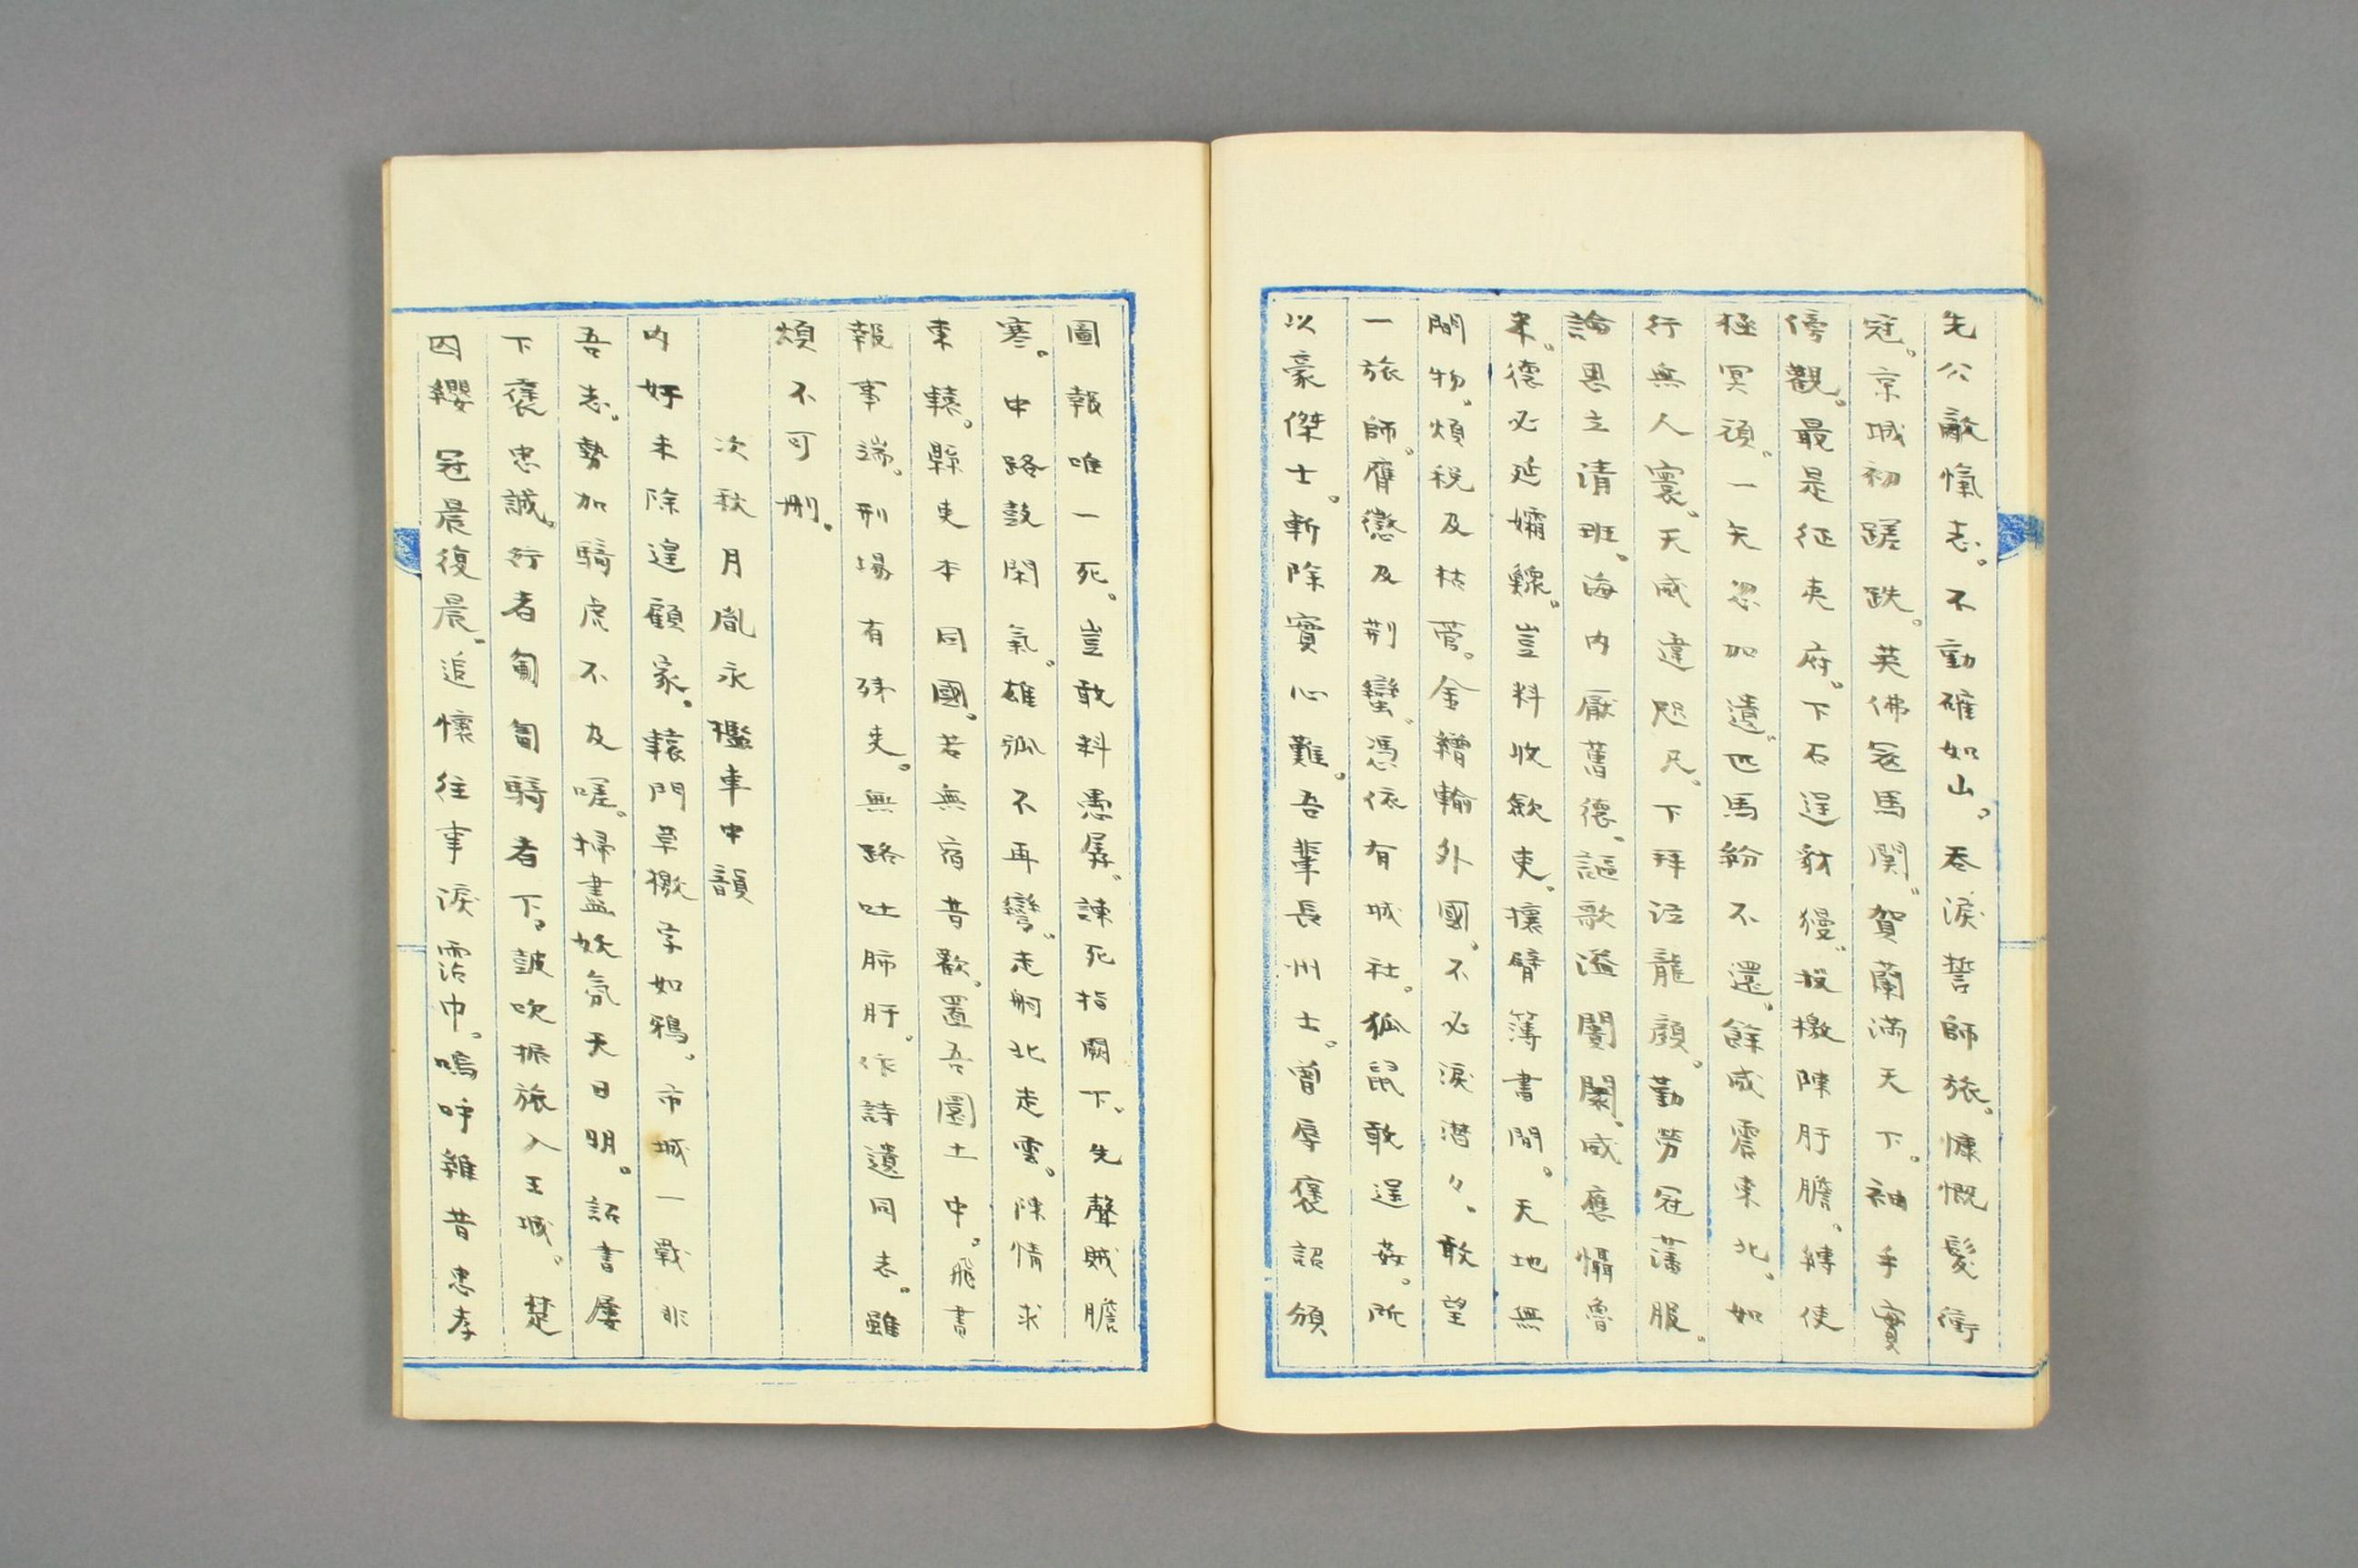 先公敵愾志。不動確如山。呑淚誓師旅。慷慨髮衝
冠。京城初蹉跌。英佛寇馬関。賀蘭滿天下。袖手實
傍觀。最是征夷府。下石逞豺獌。投檄陳肝膽。縛使
極冥頑。一矢忽加遺。匹馬紛不還。餘威震東北。如
行無人寰。天威違咫尺。下拜泣龍顏。勤勞冠藩服。
論思立清班。海内厭舊德。謳歌溢闤闠。威應懾魯
米。德必延孀鰥。豈料收斂吏。攘臂簿書間。天地無
間物。煩税及枯菅。金繒輸外國。不必淚潜々。敢望
一旅師。膺懲及荆蠻。憑依有城社。狐鼠敢逞姦。所
以豪傑士。斬除實心難。吾輩長州士。曾辱褒詔頒
圖報唯一死。豈敢料愚孱。諫死指闕下。先聲賊膽
寒。中路鼓閑氣。雄弧不再彎。走舸北走雲。陳情求
東轅。縣吏本同國。若無宿昔歡。置吾圜土中。飛書
報事端。刑場有殊失。無路吐肺肝。作詩遺同志。雖
煩不可刪。
次秋月胤永檻車中韻
内奸未除遑顧家。轅門草檄字如鴉。市城一戰非
吾志。勢加騎虎不及嗟。掃盡妖氛天日明。詔書屢
下褒忠誠。行者匍匐騎者下。鼓吹振旅入王城。楚
囚纓冠晨復晨。追懷往事淚霑巾。嗚呼雖昔忠孝